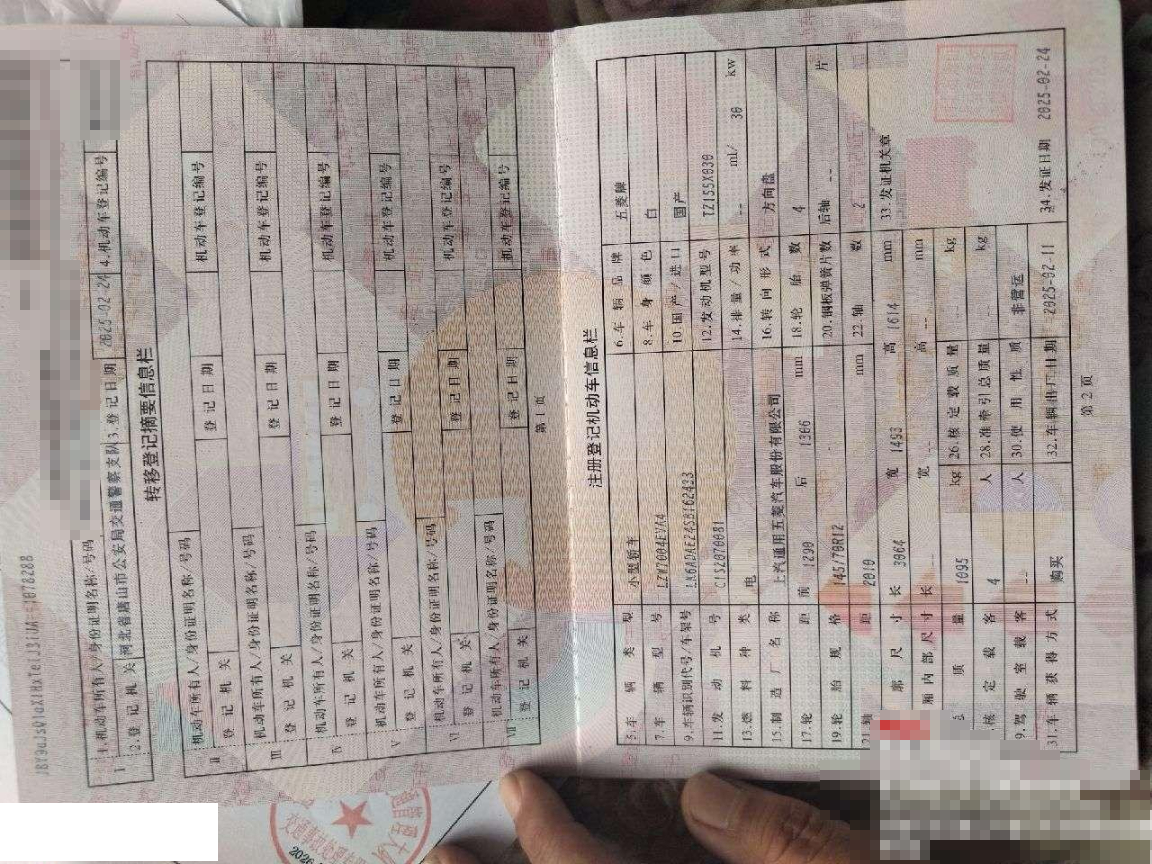 1.机动车所有人/身份证明名称/号码
2.登记机关 河北省唐山市公安局交通警察支队 3.登记日期 2025-02-24 4.机动车登记编号
转移登记摘要信息栏
Ⅱ 机动车所有人/身份证明名称/号码
登记机关 登记日期 机动车登记编号
Ⅲ 机动车所有人/身份证明名称/号码
登记机关 登记日期 机动车登记编号
Ⅳ 机动车所有人/身份证明名称/号码
登记机关 登记日期 机动车登记编号
Ⅴ 机动车所有人/身份证明名称/号码
登记机关 登记日期 机动车登记编号
Ⅵ 机动车所有人/身份证明名称/号码
登记机关 登记日期 机动车登记编号
Ⅶ 机动车所有人/身份证明名称/号码
登记机关 登记日期 机动车登记编号
第 1 页
注册登记机动车信息栏
5.车辆类型 小型轿车 6.车辆品牌 五菱牌
7.车辆型号 LZW7004EVA4 8.车身颜色 白
9.车辆识别代号/车架号 LK6ADAE24SB162423 10.国产/进口 国产
11.发动机号 C1S2070081 12.发动机型号 TZ155X030
13.燃料种类 电 14.排量/功率 -- ml/ 30 kw
15.制造厂名称 上汽通用五菱汽车股份有限公司 16.转向形式 方向盘
17.轮距 前 1290 后 1306 mm 18.轮胎数 4
19.轮胎规格 145/70R12 20.钢板弹簧片数 后轴 -- 片
21.轴距 2010 mm 22.轴数 2
廓尺寸 长 3064 宽 1493 高 1614 mm 33.发证机关章
厢内部尺寸 长 宽 -- 高 -- mm
质量 1095 kg 26.核定载质量 -- kg
核定载客 4 人 28.准牵引总质量 -- kg
9.驾驶室载客 -- 人 30.使用性质 非营运
31.车辆获得方式 购买 32.车辆出厂日期 2025-02-11 34.发证日期 2025-02-24
第 2 页